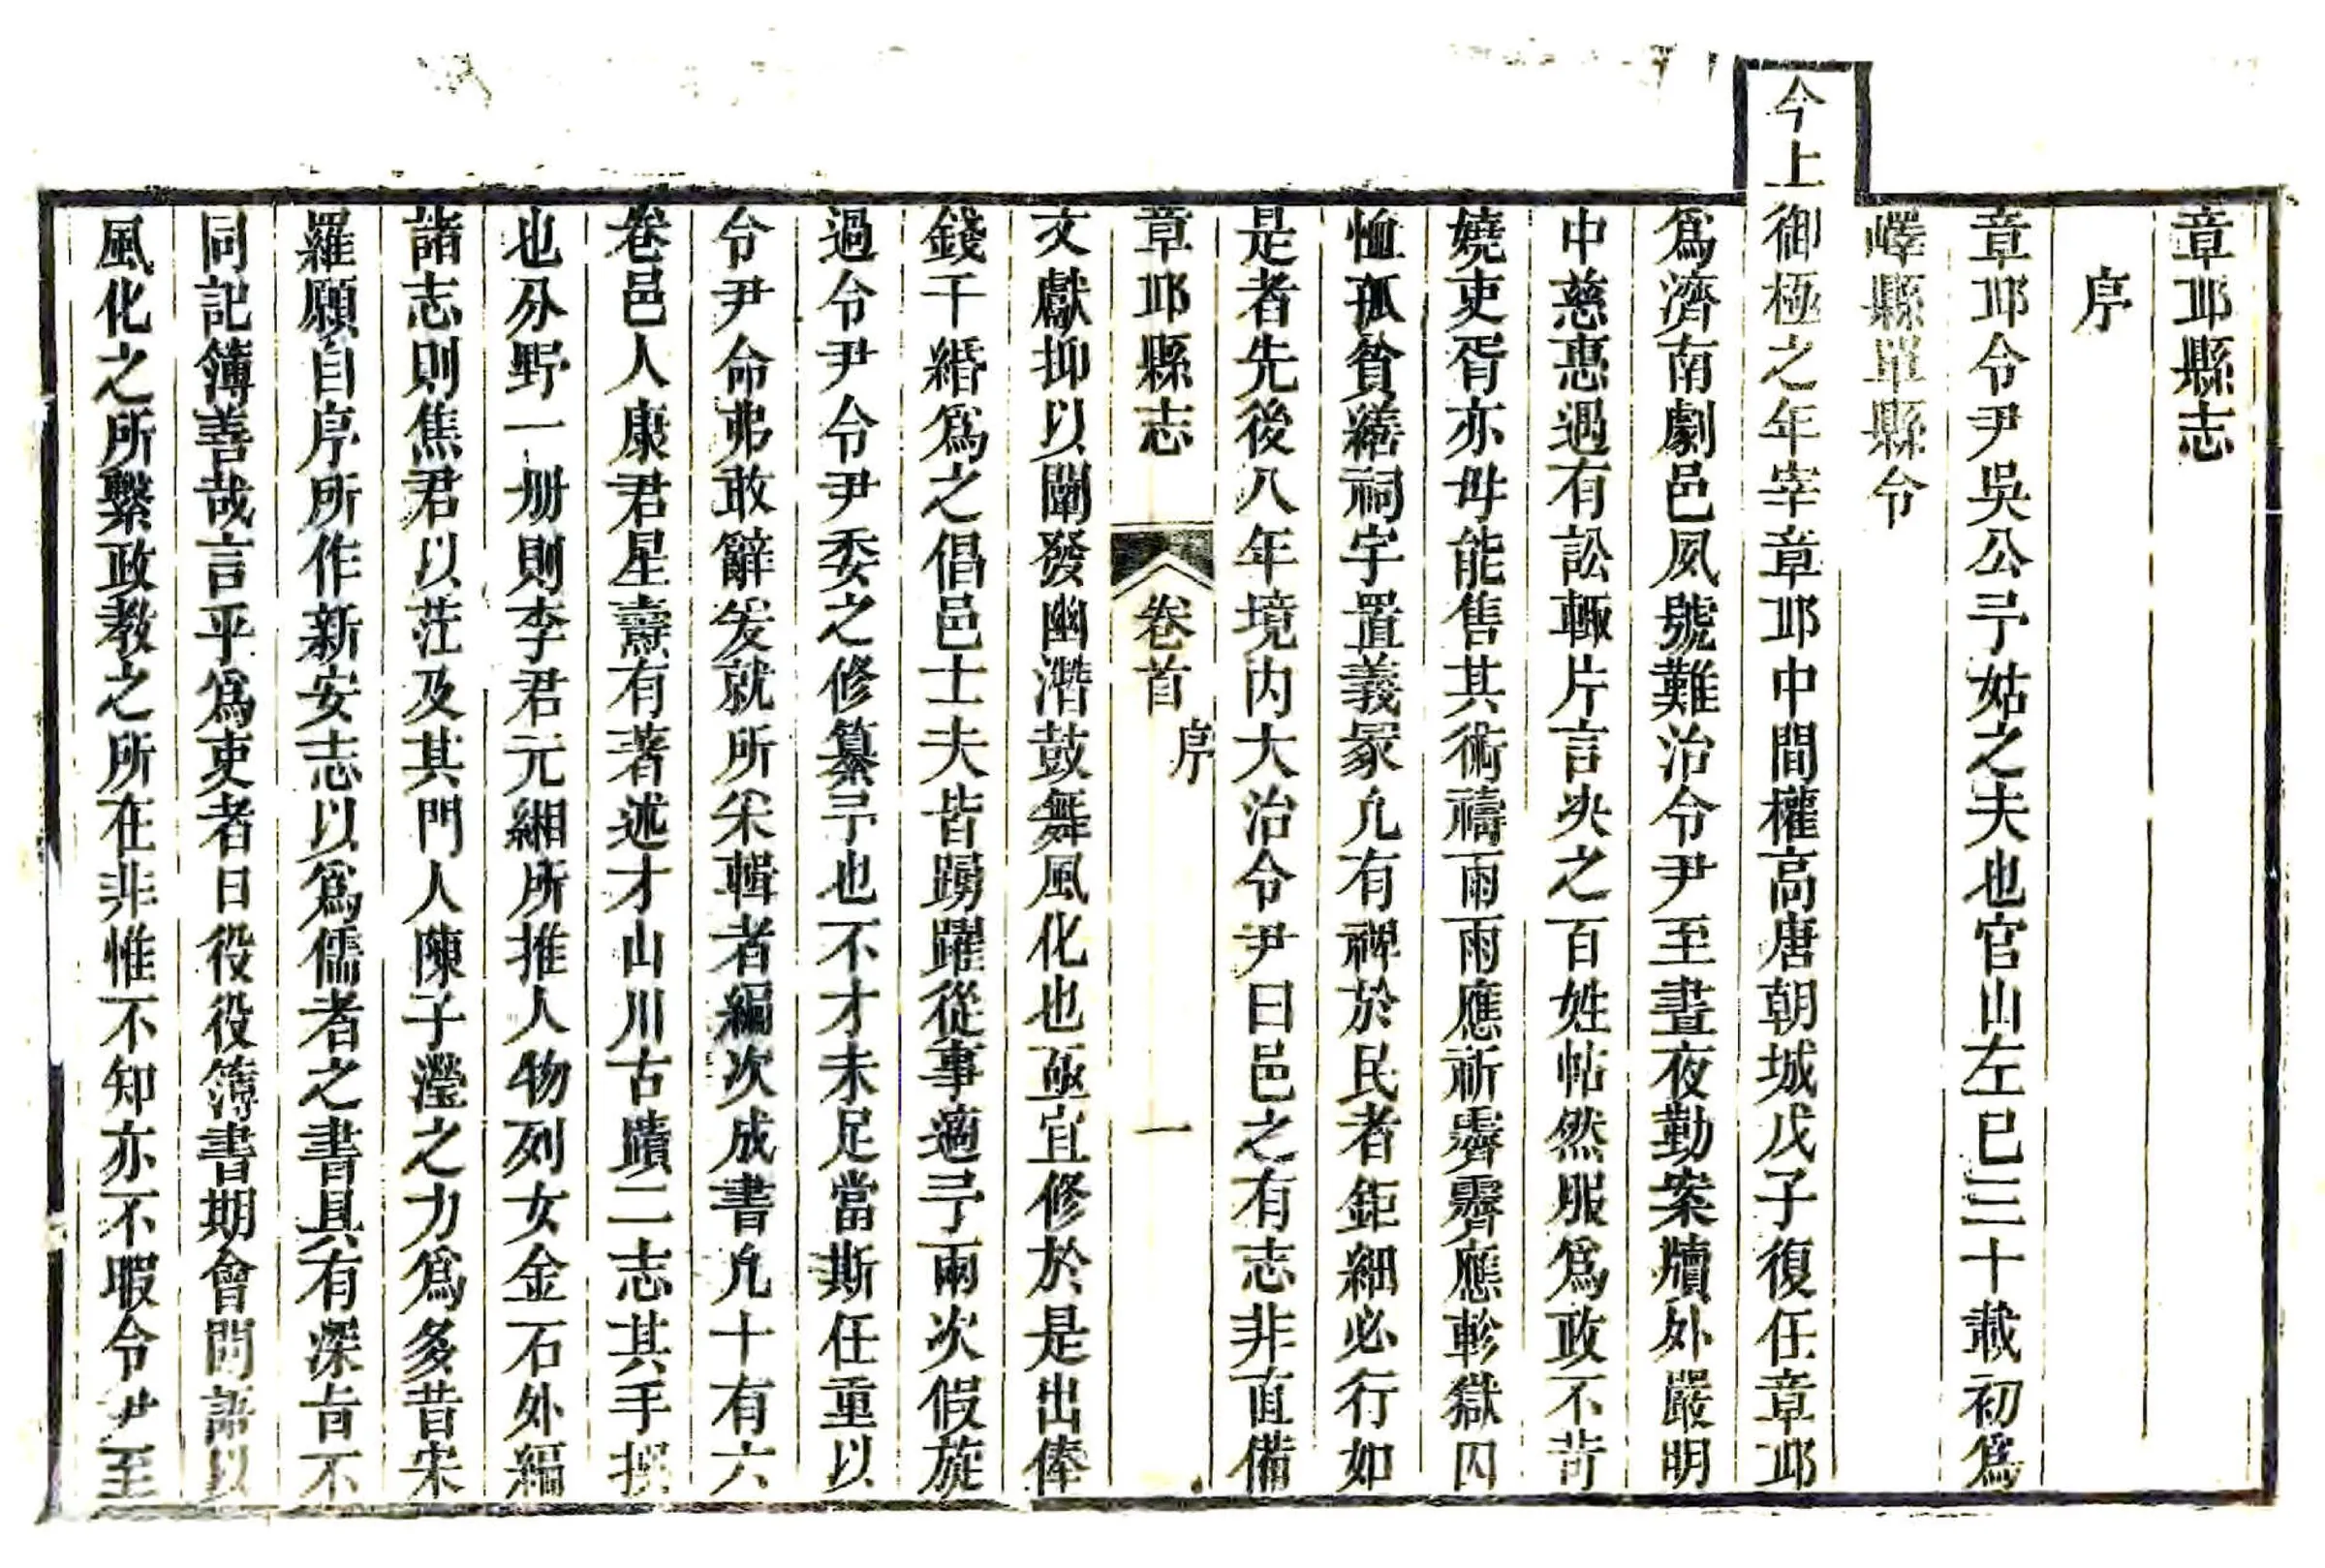 章邱縣志
序
章邱令尹吳公予姑之夫也官山左已三十載初爲
嶧縣單縣令
今上御極之年宰章邱中間權高唐朝城戊子復任章邱
爲濟南劇邑夙號難治令尹至晝夜勤案牘外嚴明
中慈惠過有訟輒片言决之百姓帖然服爲政不苛
嬈吏胥亦毋能售其術禱雨雨應祈霽霽應軫獄囚
恤孤貧繕祠宇置義冢凢有裨於民者鉅細必行如
是者先後八年境内大治令尹曰邑之有志非直備
章邱縣志
卷首
序
一
文獻抑以闡發幽潛鼓舞風化也亟宜修於是出俸
錢千緡爲之倡邑士夫皆踴躍從事適予兩次假旋
過令尹令尹委之修纂予也不才未足當斯任重以
令尹命弗敢辭爰就所采輯者編次成書凢十有六
卷邑人康君星燾有著述才山川古蹟二志其手撰
也分野一册則李君元緗所推人物列女金石外編
諸志則焦君以莊及其門人陳子瀅之力爲多昔宋
羅願自序所作新安志以爲儒者之書具有深旨不
同記簿善哉言乎爲吏者日役役簿書期會間語以
風化之所繫政教之所在非惟不知亦不暇令尹至